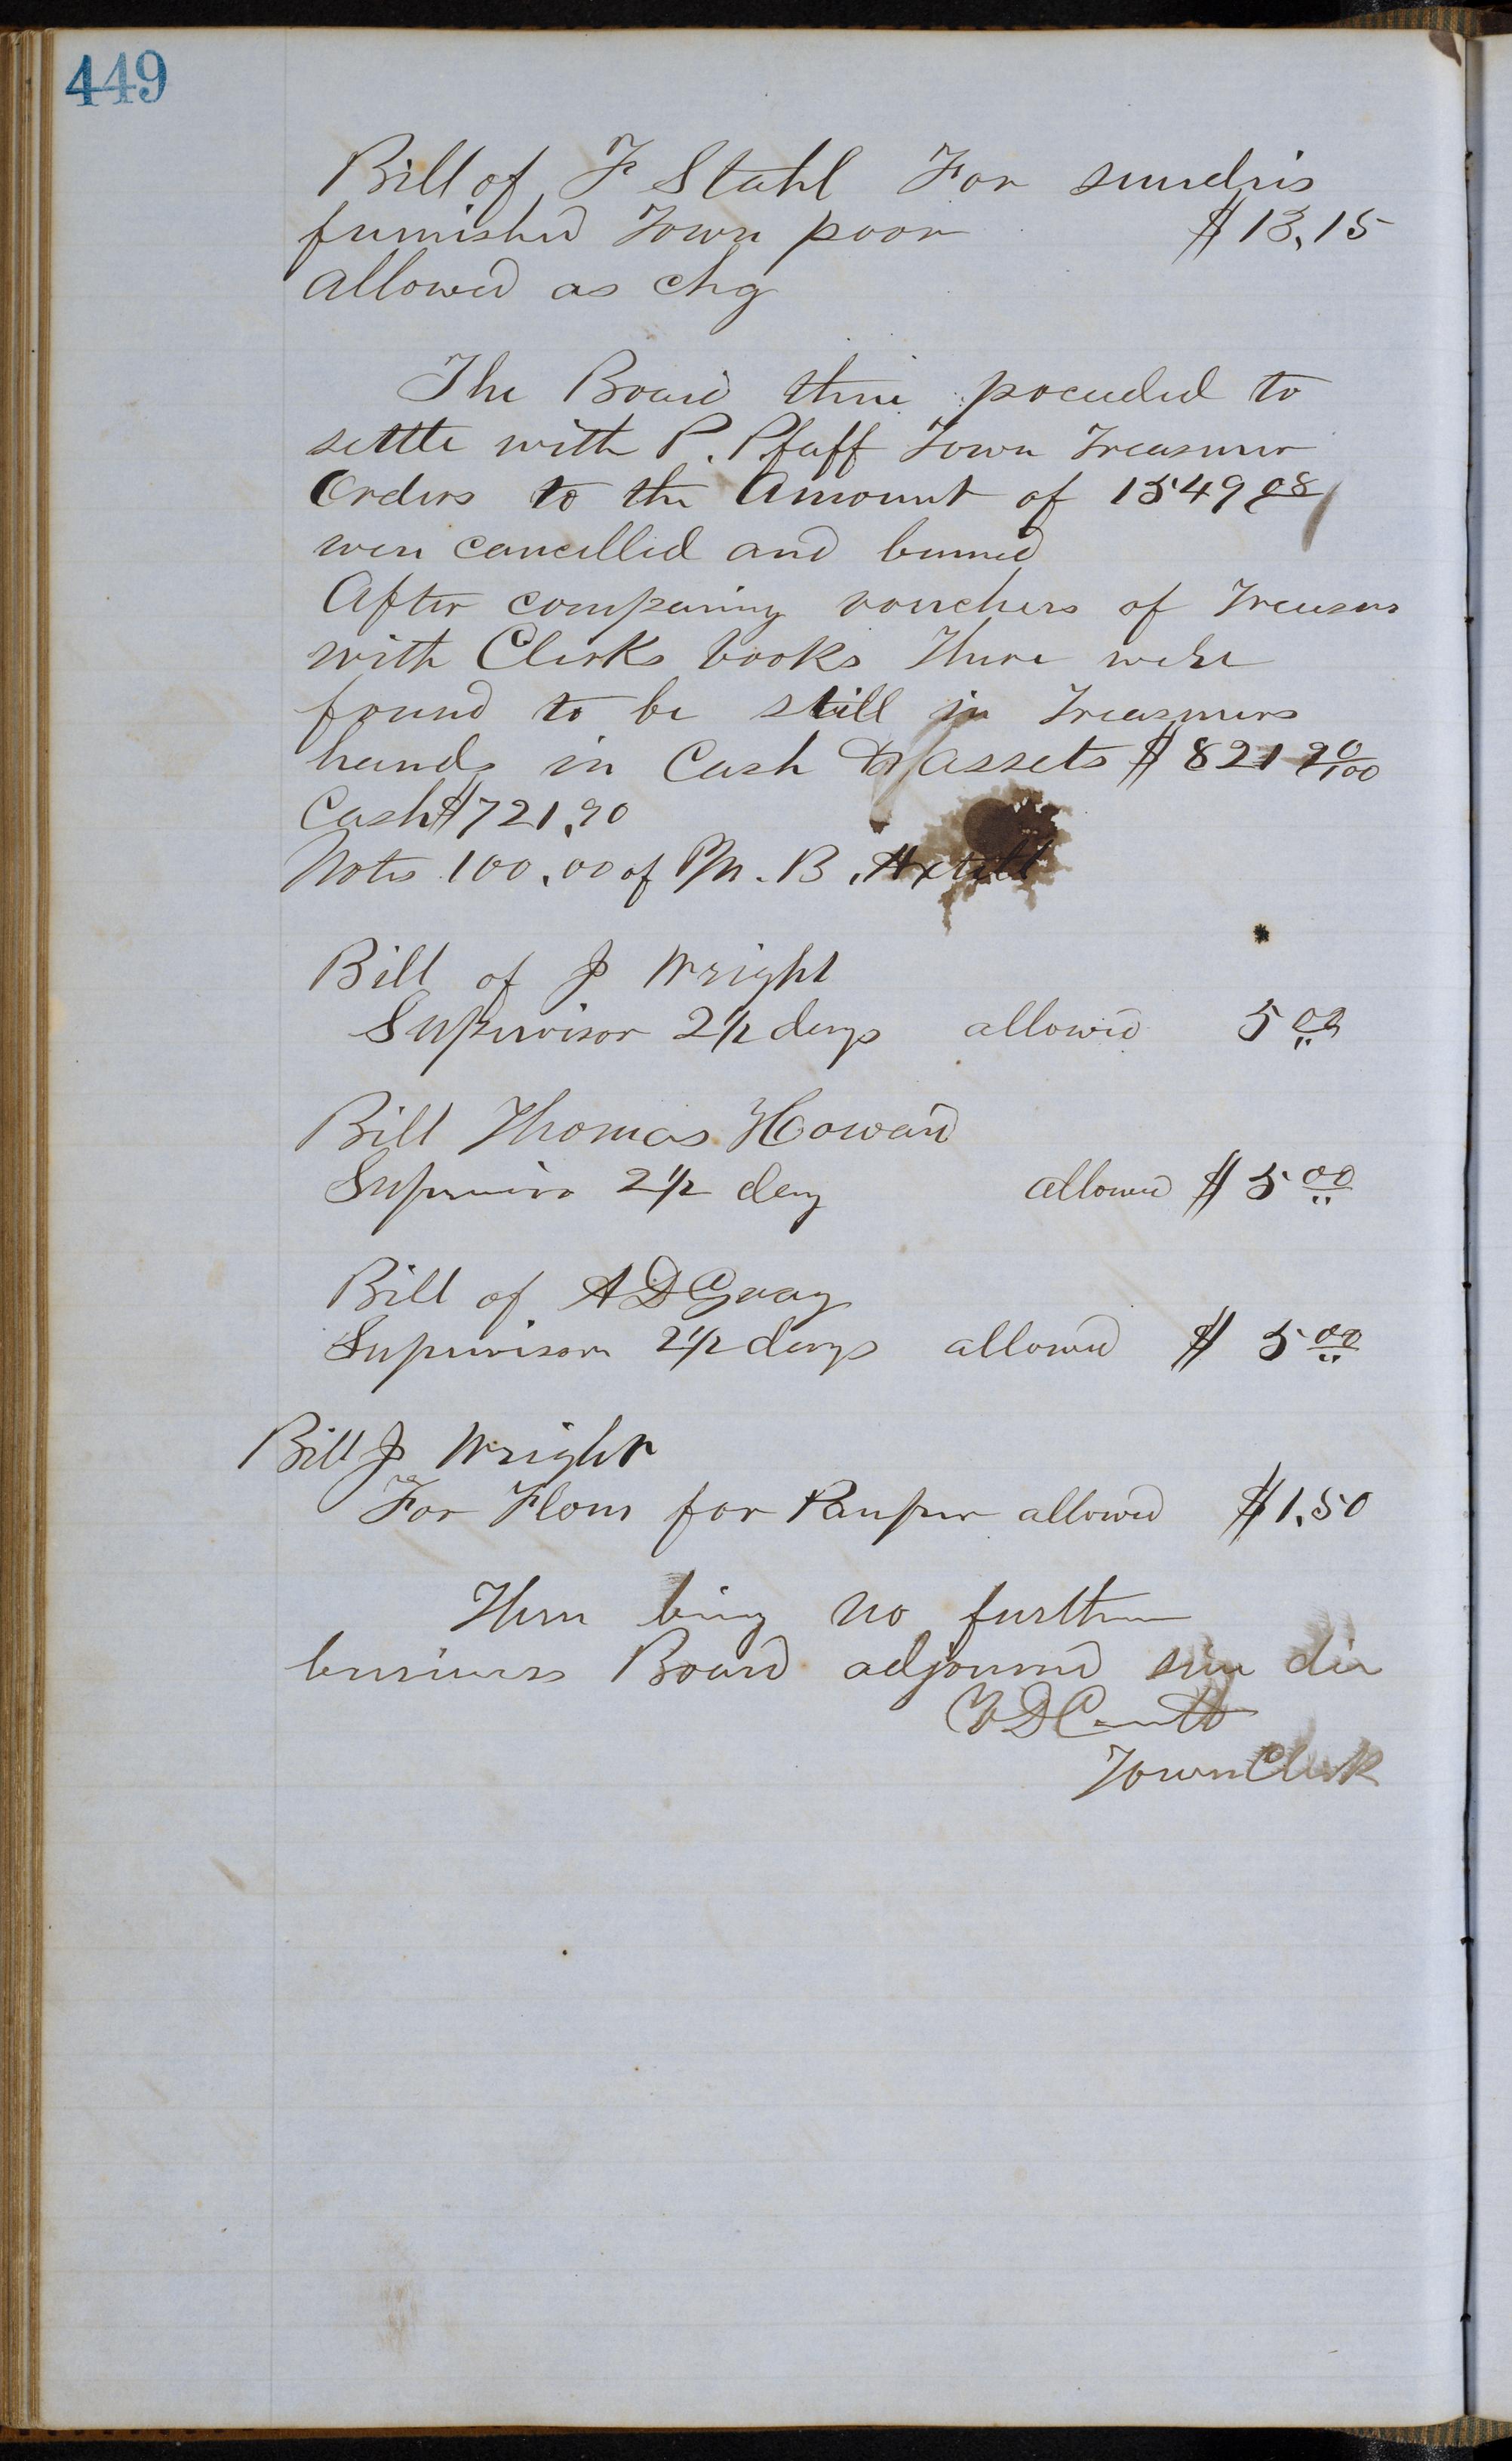 449
Bill of F Stahl For sundris
furnished Town poor $13.15
allowed as chg
The Board then poceeded to
settle with P. Pfaff Town Treasurer
Orders to the Amount of 1549 08
were cancelled and burned
After comparing vouchers of Treasurs
with Clerks books There were
found to be still in Treasurers
hands in Cash & assets $821 90/100
Cash $721.90
Notes 100.00 of M. B. Axtell
Bill of J Wright
Supervisor 2 1/2 days allowed 5 00
Bill Thomas Howard
Supervisor 2 1/2 day allowed $5 00
Bill of A D Gray
Supervisor 2 1/2 days allowed $ 5 00
Bill J Wright
For Flour for Pauper allowed $1.50
There being no further
business Board adjourned sine die
Town Clerk